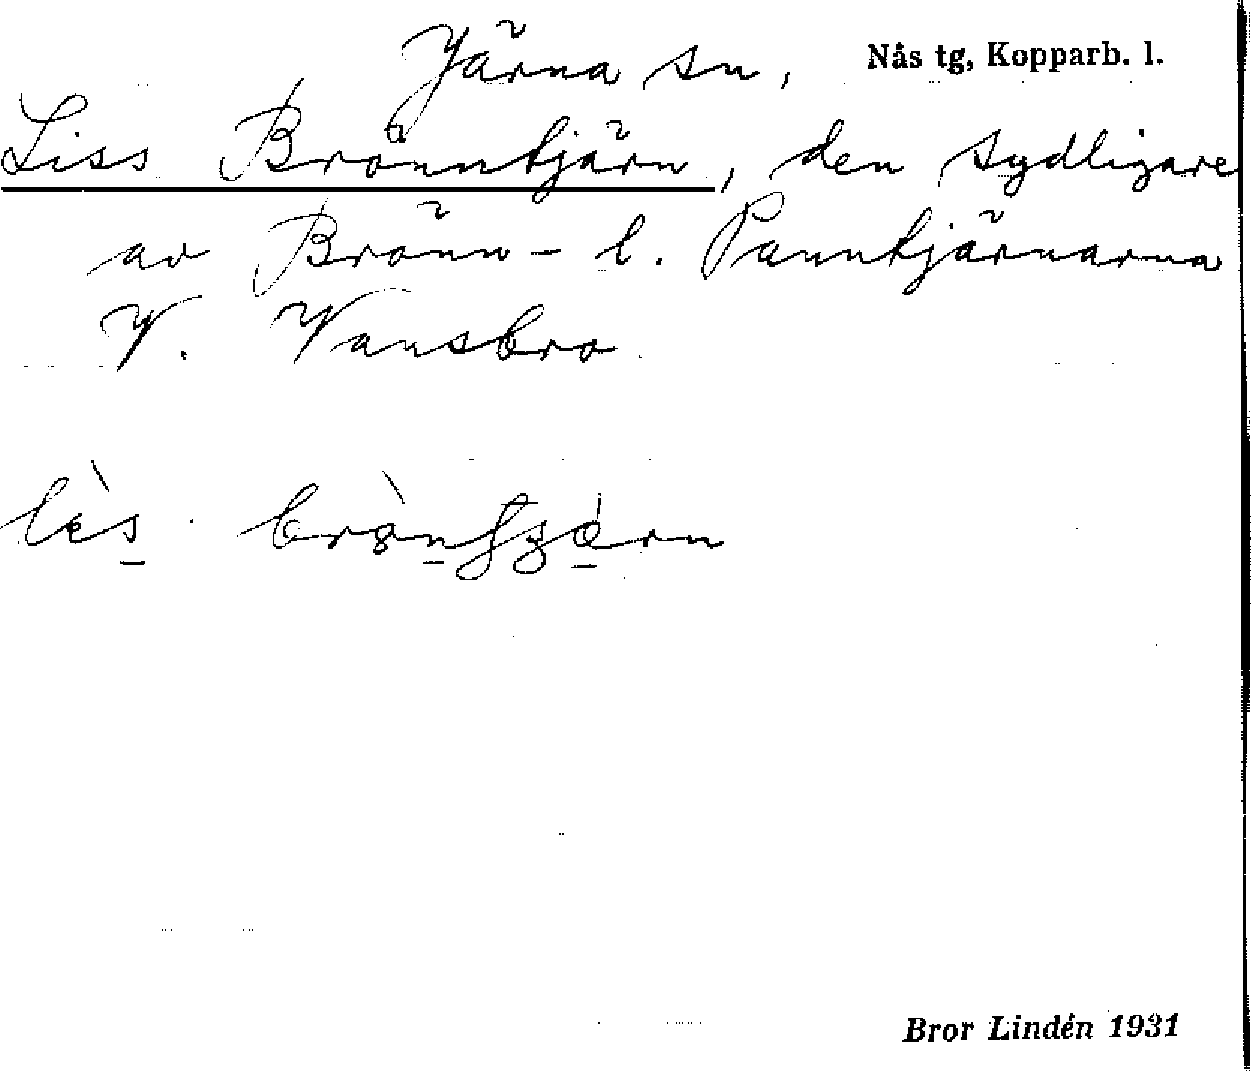 Järna sn, Nås tg, Kopparb. l.
Liss Brönntjärn, den sydligare
av Brönn- l. Panntjärnarna
V. Vansbro
Bror Lindén 1931